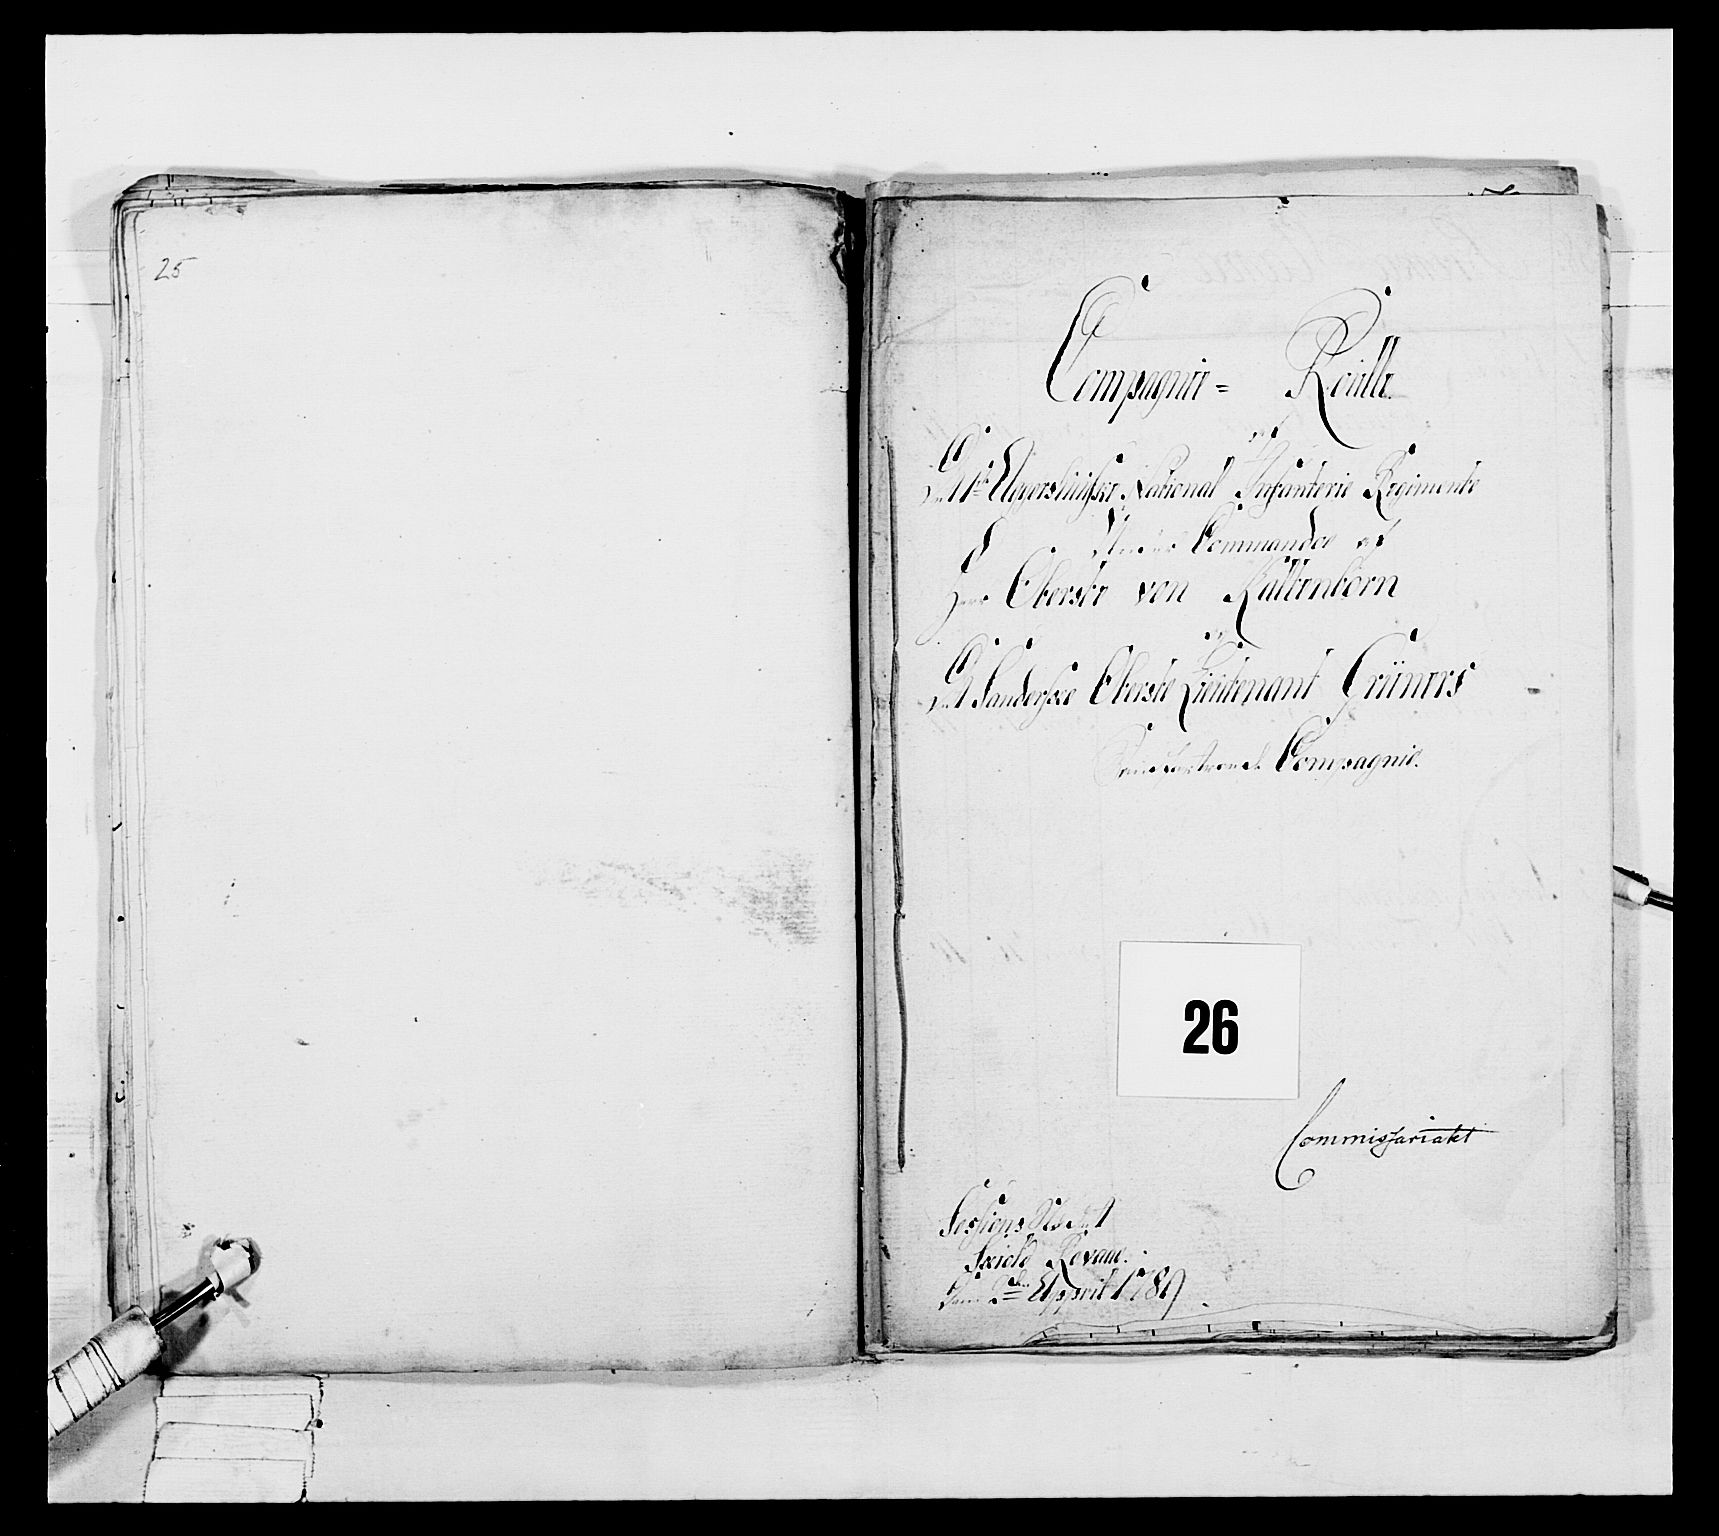 25
Compagnie= Roulle
af
Det 1ste Aggershuusiske National Infanterie Regimente
Under Commando af
Herr Oberste von Kaltenborn
af
Det Sanderske Oberste Lieutenant Grüners
Compagnie.
26
Commissariatet
Sessions Stædet
Skiold Revam.
Dend 2den Appril 1789